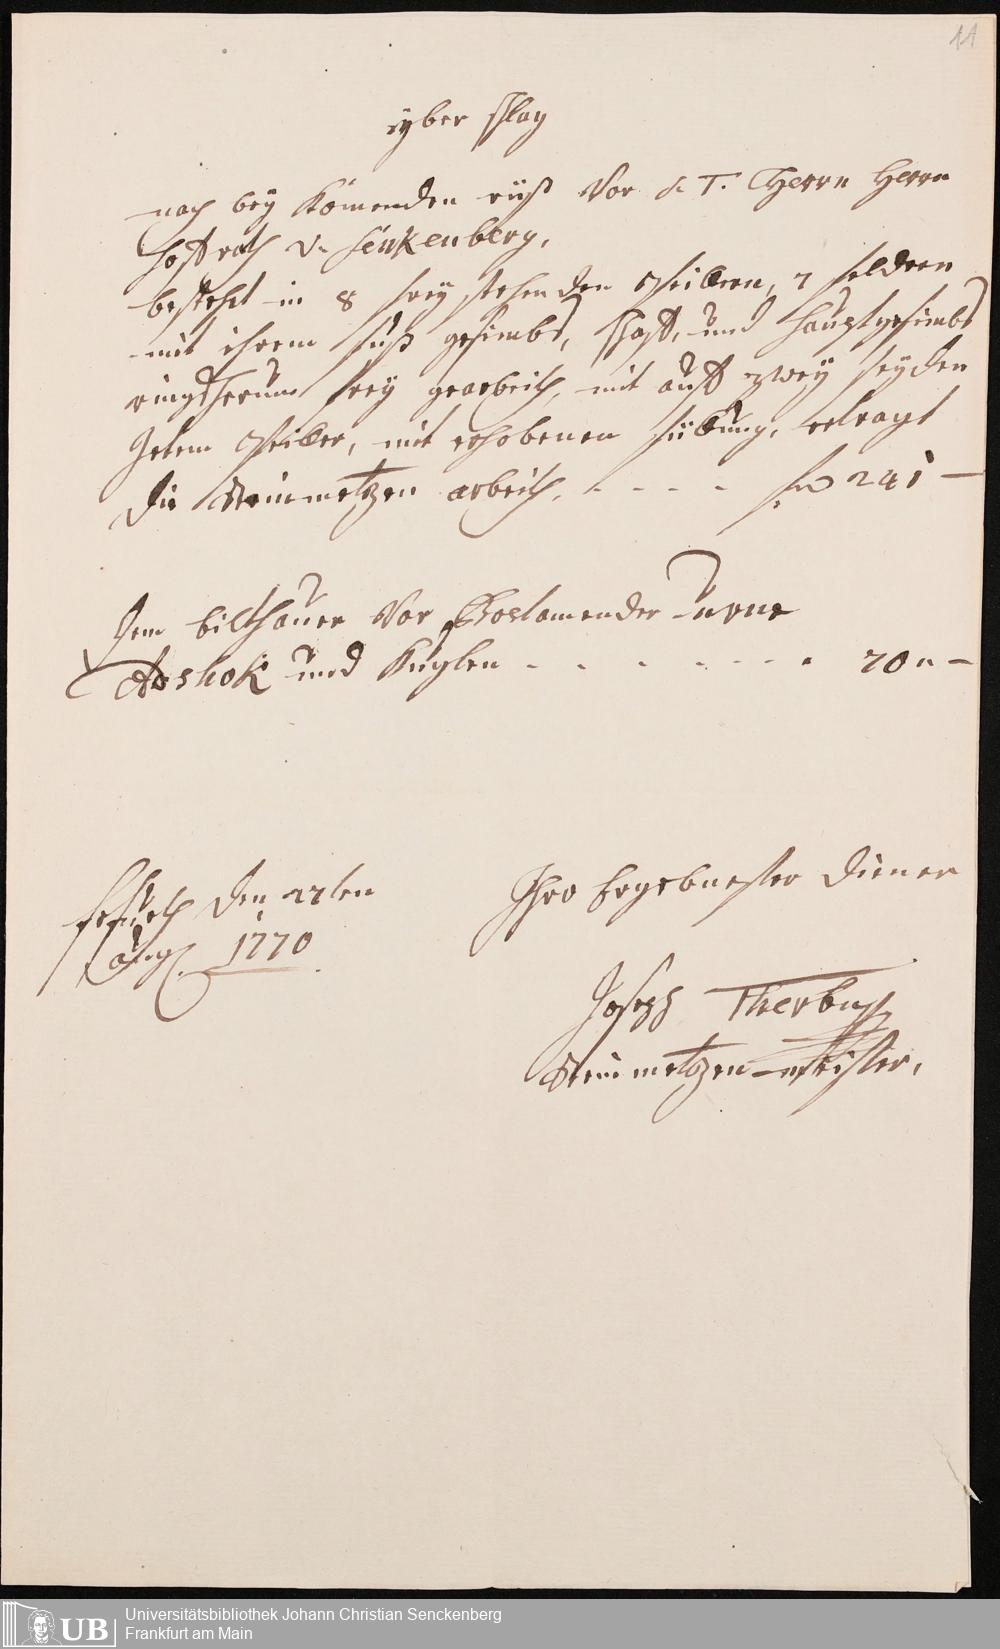 11
yber schlag
nach bey kömenden riß Vor S: T. Herrn Herrn
hoffrath v: senkenberg,
bestehet in 8 freÿ stehenden Pfeillern, 7 feldern
mit ihrem fuß gesimbs, schafft, und hauptgesimbs
ringsherum freÿ gearbeith, mit auff zweÿ seyden
Jetem Pfeiller, mit erhobenen füllung, betragt
die steinmetzen arbeith, - - - - fl 241 —
dem bilthauer Vor Postamender urne
und kuglen - - - - - - - - 70 „ —
den 27ten
aug. 1770
Ihro Ergebnester diener
Joseph
steinmetzen meister,
UB
Universitätsbibliothek Johann Christian Senckenberg
Frankfurt am Main